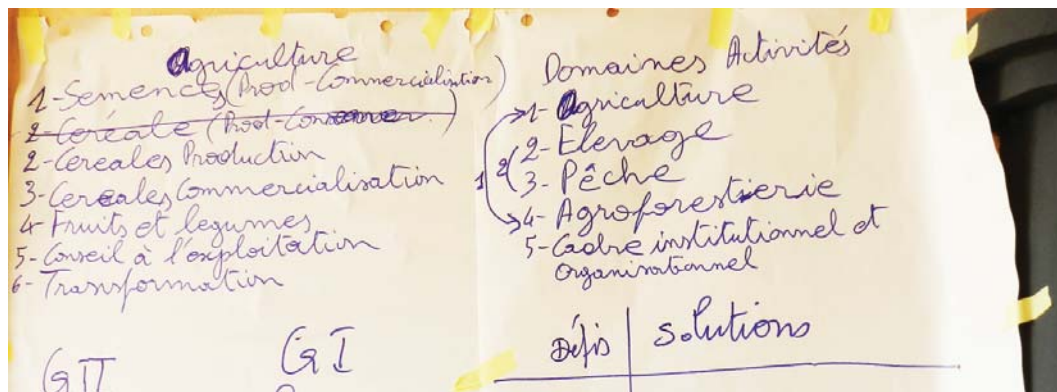 Agriculture
1-Semences (Prod-Commercialisation)
2-Céréale (Prod-
2-Céréales Production
3-Céréales Commercialisation
4-Fruits et legumes
5-Conseil à l'exploitation
6-Transformation
GII
GI
Domaines Activités
1-Agriculture
2-Elevage
3-Pêche
4-Agroforestierie
5-Cadre institutionnel et
Organisationnel
1
2
Défis
Solutions